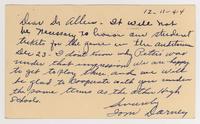 12-11-44
Dear Dr Allen - It will not
be necessary to honor our student
tickets for the game in the auditorium
Dec 23 - I don't know why Peters was
under that impression we are happy
to get to play there and we will
be glad to cooperate with you under
the same terms as the other High
Schools.
Sincerely
Tom